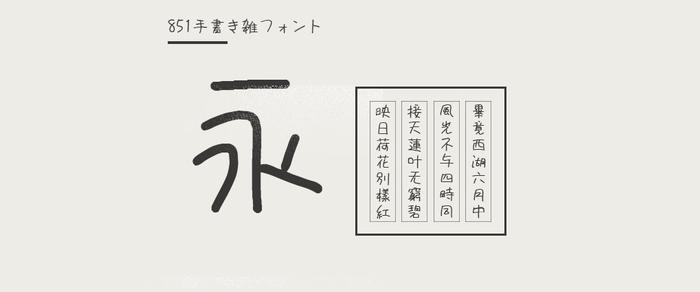 851手書き雑フォント
永
畢竟西湖六月中
風光不与四時同
接天蓮叶无窮碧
映日荷花別樣紅